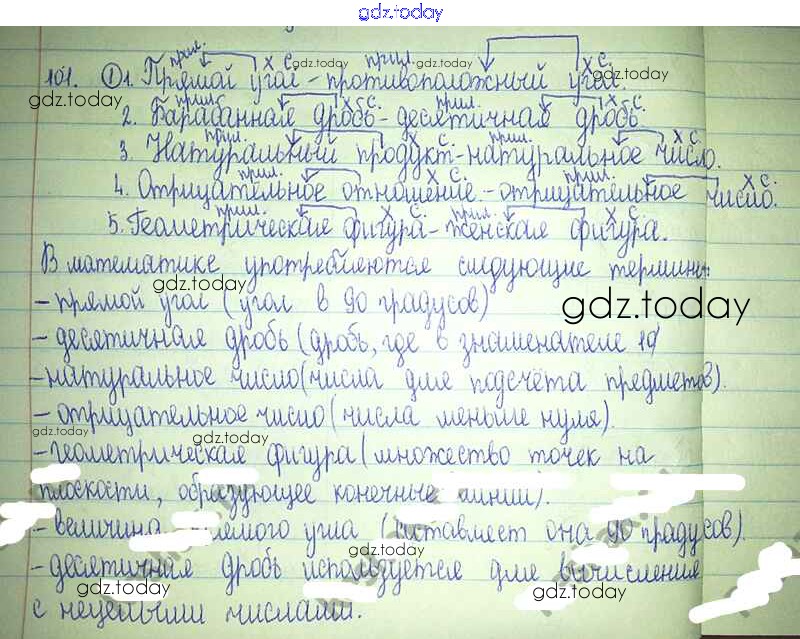 gdz.today
прил. х с. gdz.today прил. х с.
101. ① 1. Прямой угол - противоположный угол. gdz.today
gdz.today прил. х с. прил. х с.
2. Барабанная дробь - десятичная дробь.
прил. х с. прил. х с.
3. Натуральный продукт - натуральное число.
прил. х с. прил. х с.
4. Отрицательное отношение - отрицательное число.
прил. х с. прил. х с.
5. Геометрическая фигура - женская фигура.
В математике употребляются следующие термины:
gdz.today
- прямой угол (угол в 90 градусов)
gdz.today
- десятичная дробь (дробь, где в знаменателе 10)
- натуральное число (числа для подсчёта предметов).
- отрицательное число (числа меньше нуля).
gdz.today
gdz.today
- геометрическая фигура (множество точек на
плоскости, образующее конечные линии).
- величина прямого угла (составляет она 90 градусов).
gdz.today
- десятичная дробь используется для вычисления
gdz.today
с нецелыми числами.
gdz.today